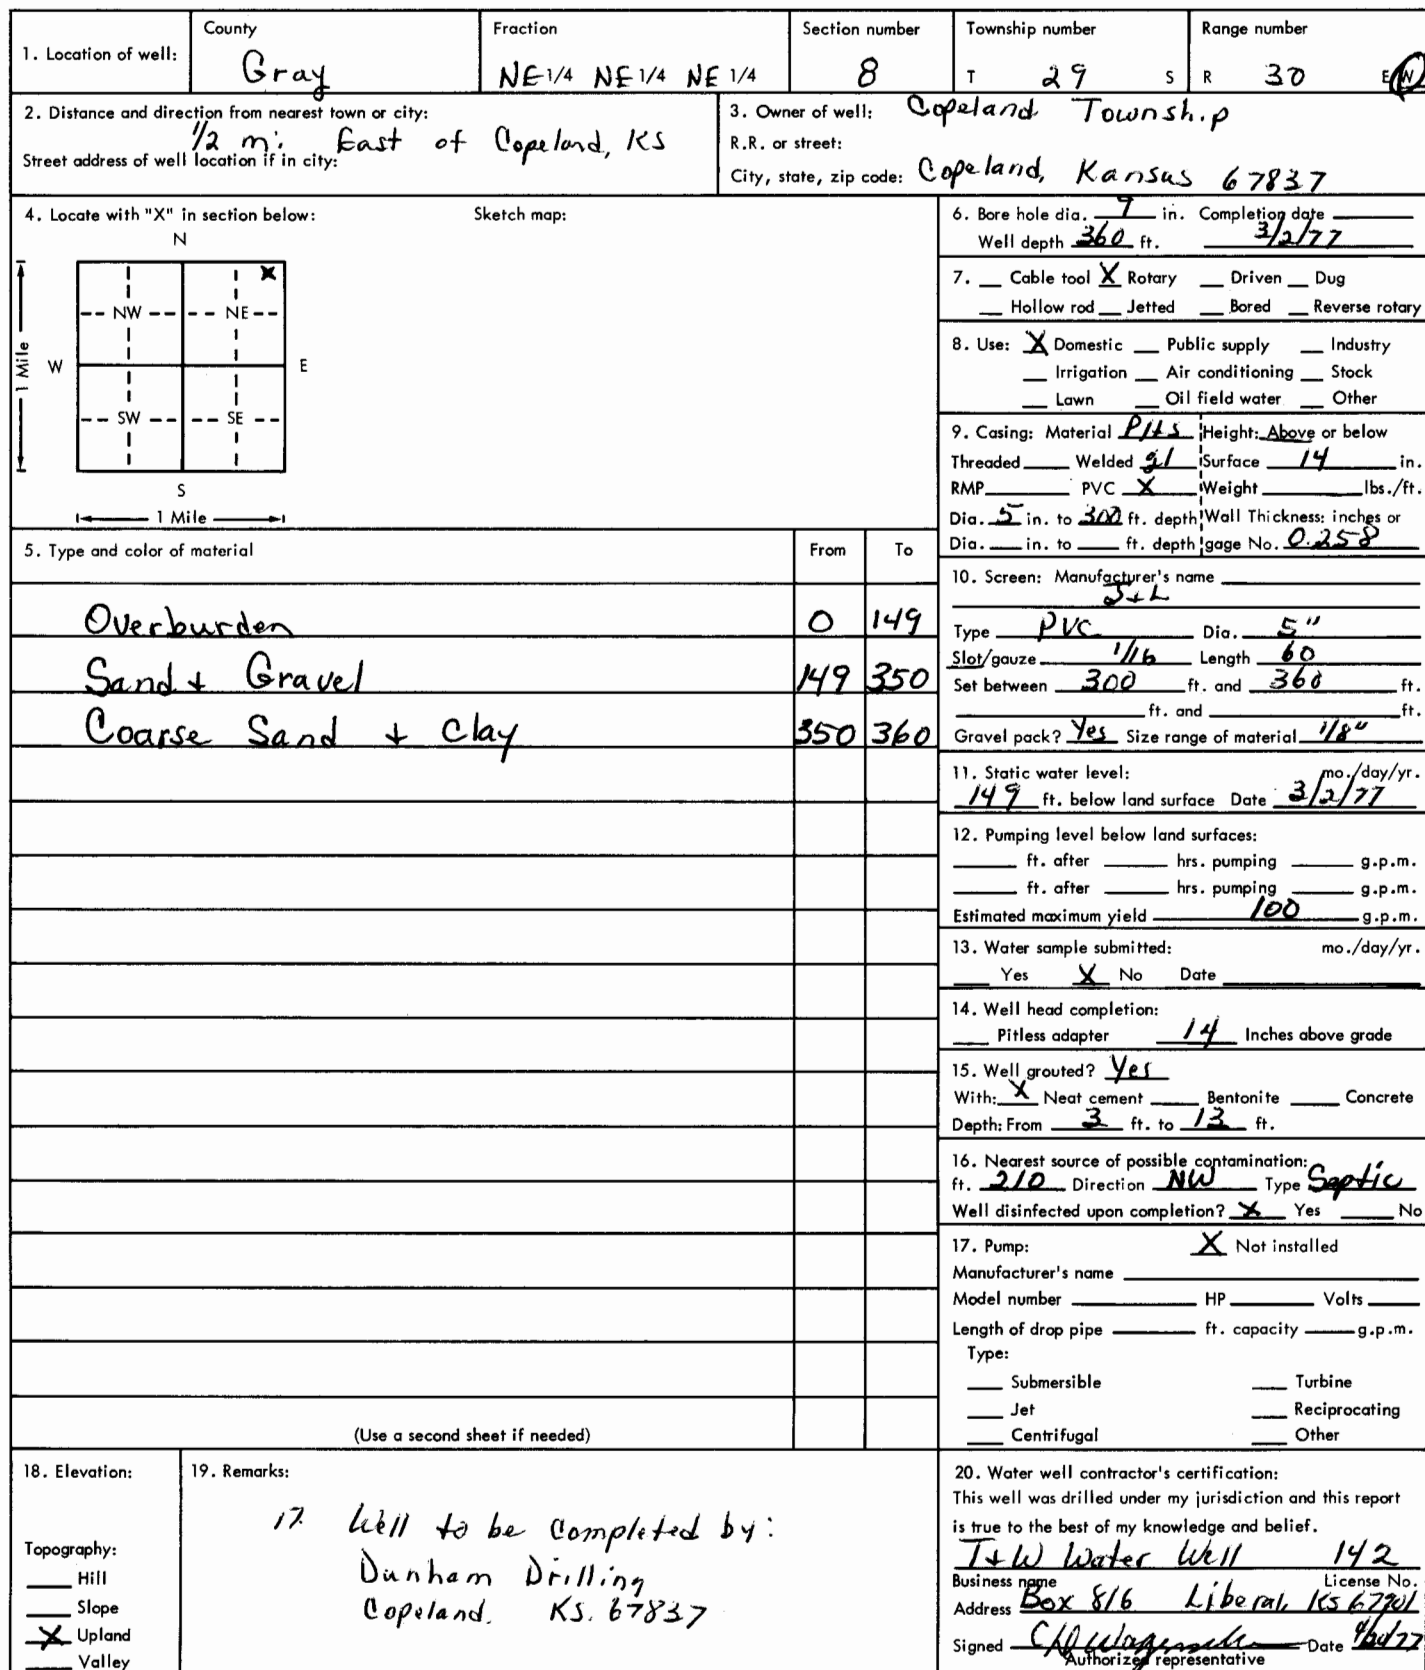 1. Location of well: County Gray Fraction NE 1/4 NE 1/4 NE 1/4 Section number 8 Township number T 29 S Range number R 30 E W
2. Distance and direction from nearest town or city: 1/2 mi East of Copeland, KS
Street address of well location if in city:
3. Owner of well: Copeland Township
R.R. or street:
City, state, zip code: Copeland, Kansas 67837
4. Locate with "X" in section below: Sketch map:
N
X
NW NE
W E
1 Mile
SW SE
S
1 Mile
5. Type and color of material From To
Overburden 0 149
Sand + Gravel 149 350
Coarse Sand + Clay 350 360
(Use a second sheet if needed)
6. Bore hole dia. 9 in. Completion date
Well depth 360 ft. 3/2/77
7. __ Cable tool X Rotary __ Driven __ Dug
__ Hollow rod __ Jetted __ Bored __ Reverse rotary
8. Use: X Domestic __ Public supply __ Industry
__ Irrigation __ Air conditioning __ Stock
__ Lawn __ Oil field water __ Other
9. Casing: Material Height: Above or below
Threaded ____ Welded gl Surface 14 in.
RMP ____ PVC X Weight ____ lbs./ft.
Dia. 5 in. to 300 ft. depth Wall Thickness: inches or
Dia. ___ in. to ___ ft. depth gage No. 0.258
10. Screen: Manufacturer's name
J+L
Type PVC Dia. 5"
Slot/gauze 1/16 Length 60
Set between 300 ft. and 360 ft.
____ ft. and ____ ft.
Gravel pack? Yes Size range of material 1/8"
11. Static water level: mo./day/yr.
149 ft. below land surface Date 3/2/77
12. Pumping level below land surfaces:
____ ft. after ____ hrs. pumping ____ g.p.m.
____ ft. after ____ hrs. pumping ____ g.p.m.
Estimated maximum yield 100 g.p.m.
13. Water sample submitted: mo./day/yr.
__ Yes X No Date ____
14. Well head completion:
__ Pitless adapter 14 Inches above grade
15. Well grouted? Yes
With: X Neat cement ___ Bentonite ___ Concrete
Depth: From 3 ft. to 13 ft.
16. Nearest source of possible contamination:
ft. 210 Direction NW Type Septic
Well disinfected upon completion? X Yes ___ No
17. Pump: X Not installed
Manufacturer's name ____
Model number ____ HP ____ Volts ____
Length of drop pipe ____ ft. capacity ____ g.p.m.
Type:
__ Submersible __ Turbine
__ Jet __ Reciprocating
__ Centrifugal __ Other
18. Elevation:
Topography:
__ Hill
__ Slope
X Upland
__ Valley
19. Remarks:
17. Well to be completed by:
Dunham Drilling
Copeland. KS. 67837
20. Water well contractor's certification:
This well was drilled under my jurisdiction and this report
is true to the best of my knowledge and belief.
T+W Water Well 142
Business name License No.
Address Box 816 Liberal, Ks 67901
Signed Date
Authorized representative